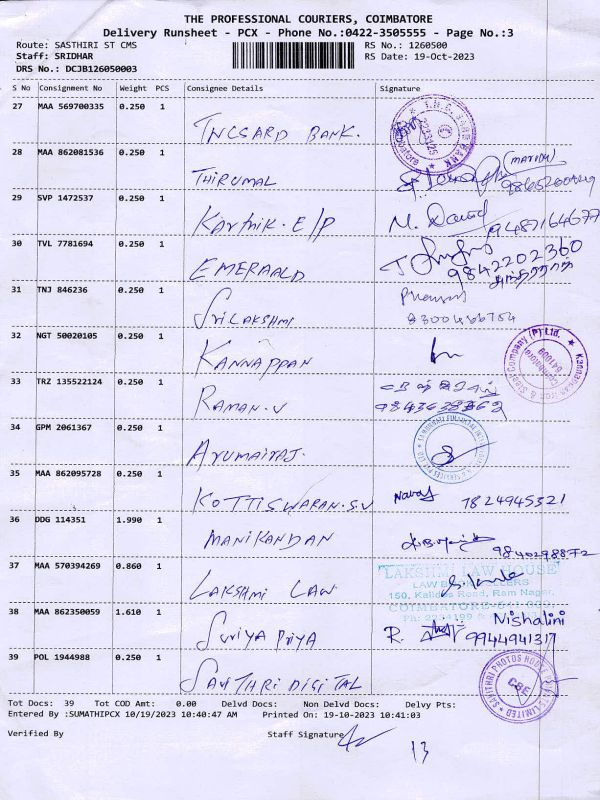 THE PROFESSIONAL COURIERS, COIMBATORE
Delivery Runsheet - PCX - Phone No.:0422-3505555 - Page No.:3
Route: SASTHIRI ST CMS RS No.: 1260500
Staff: SRIDHAR RS Date: 19-Oct-2023
DRS No.: DCJB126050003
S No Consignment No Weight PCS Consignee Details Signature
27 MAA 569700335 0.250 1
TNCSARD BANK.
28 MAA 862081536 0.250 1
THIRUMAL
29 SVP 1472537 0.250 1
Karthik. E/P M. David 9487164677
30 TVL 7781694 0.250 1
EMERAALD 9842202360
31 TNJ 846236 0.250 1
SRI LAKSHMI 8300466784
32 NGT 50020105 0.250 1
KANNAPPAN
Kannappan Iron & Steel Company (P) Ltd.
Coimbatore 641009
33 TRZ 135522124 0.250 1
RAMAN.V
34 GPM 2061367 0.250 1
ARUMAIRAJ.
35 MAA 862095728 0.250 1
KOTTISWARAN.S.V 7824945321
36 DDG 114351 1.990 1
MANIKANDAN 9840298872
37 MAA 570394269 0.860 1
LAKSHMI LAW
"LAKSHMI LAW HOUSE"
LAW BOOK SELLERS
150, Kalidas Road, Ram Nagar,
COIMBATORE-641 009
38 MAA 862350059 1.610 1
SURIYA PRIYA R. Nishalini
9944941317
39 POL 1944988 0.250 1
SAVITHRI DIGITAL
SAVITHRI PHOTOS HOUSE PRIVATE LIMITED
CBE
Tot Docs: 39 Tot COD Amt: 0.00 Delvd Docs: Non Delvd Docs: Delvy Pts:
Entered By :SUMATHIPCX 10/19/2023 10:40:47 AM Printed On: 19-10-2023 10:41:03
Verified By Staff Signature
13